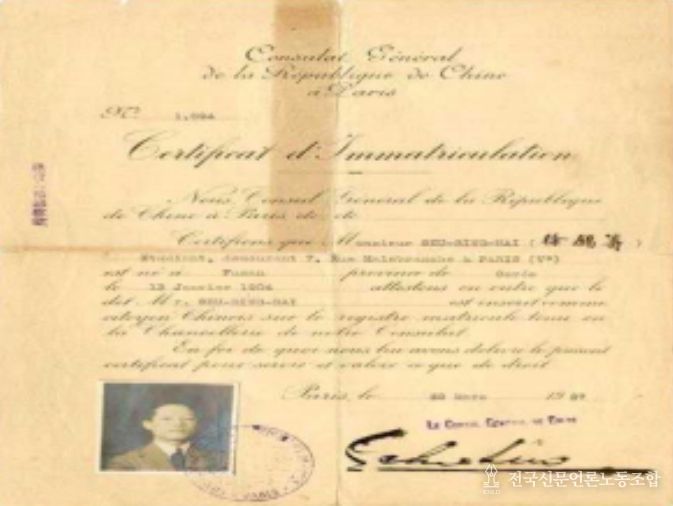 Consulat Général
de la République de Chine
à Paris
Nº
Certificat d'Immatriculation
Nous, Consul Général de la République
de Chine à Paris
Certifions que Monsieur SEU-RING-HAI (徐嶺海)
Etudiant, demeurant 7, Rue Malebranche à PARIS (Vº)
est né à Fusan province de Corée
le 13 Janvier 1904 attestons en outre que le
dit Mr. SEU-RING-HAI est inscrit comme
citoyen Chinois sur le registre matricule tenu en
la Chancellerie de notre Consulat.
En foi de quoi nous lui avons délivré le présent
certificat pour servir et valoir ce que de droit
Paris, le Mars 19
Le Consul Général de Chine
전국신문언론노동조합